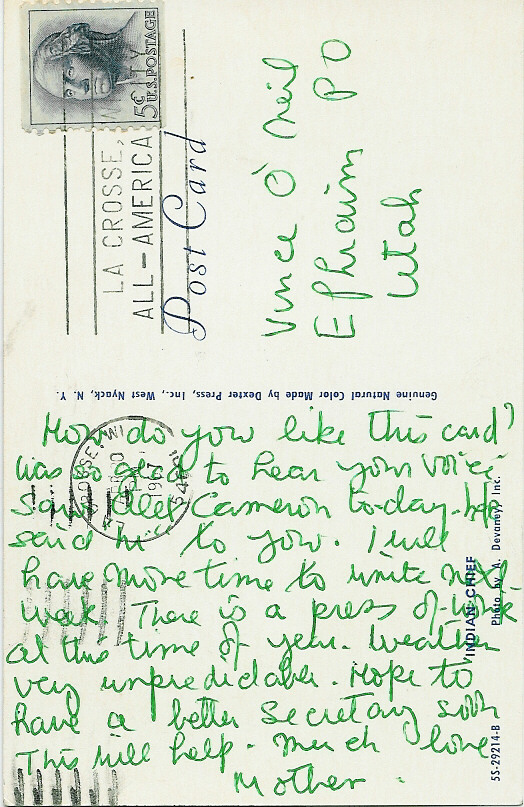 5¢ U.S. POSTAGE
LA CROSSE,
ALL-AMERICA CITY
Post Card
Vince O'Neil
Ephraim PO
Utah
Genuine Natural Color Made by Dexter Press, Inc., West Nyack, N. Y.
LA CROSSE, WI
1967
How do you like this card?
Was so glad to hear your voice
Saw Cameron to-day. He
said "hi" to you. I will
have more time to write next
week. There is a press of work
at this time of year. Weather
very unpredictable. Hope to
have a better secretary soon
This will help. Much love
Mother.
"INDIAN CHIEF"
Photo by A. Devaney, Inc.
5S-29214-B